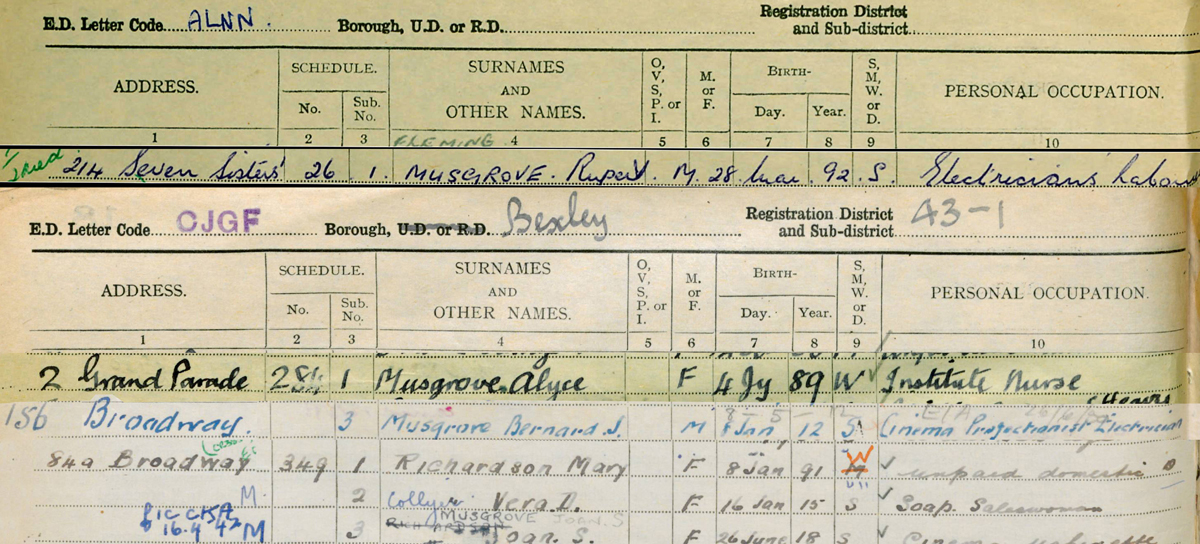 E.D. Letter Code ALNN. Borough, U.D. or R.D. Registration District and Sub-district
ADDRESS. SCHEDULE. No. Sub. No. SURNAMES AND OTHER NAMES. O, V, S, P. or I. M. or F. BIRTH- Day. Year. S, M, W. or D. PERSONAL OCCUPATION.
1 2 3 FLEMING 4 5 6 7 8 9 10
214 Seven Sisters 26 1. MUSGROVE. Rupert M. 28 Mar. 92 S. Electricians Labour
E.D. Letter Code CJGF Borough, U.D. or R.D. Bexley Registration District and Sub-district 43-1
ADDRESS. SCHEDULE. No. Sub. No. SURNAMES AND OTHER NAMES. O, V, S, P. or I. M. or F. BIRTH- Day. Year. S, M, W. or D. PERSONAL OCCUPATION.
1 2 3 4 5 6 7 8 9 10
2 Grand Parade 284 1 Musgrove Alyce F 4 Jy 89 W Institute Nurse
156 Broadway. 3 Musgrove Bernard J. M 1 Jan 12 S Cinema Projectionist Electrician
84a Broadway 349 1 Richardson Mary F 8 Jan 91 W unpaid domestic D
M 2 Collyer Vera D. F 16 Jan 15 S Soap Saleswoman
16.4.42 M MUSGROVE JOAN. S
3 RICHARDSON Joan S. F 26 June 18 S Cinema